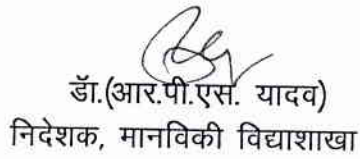 डॅा.(आर.पी.एस. यादव)
निदेशक, मानविकी विद्याशाखा